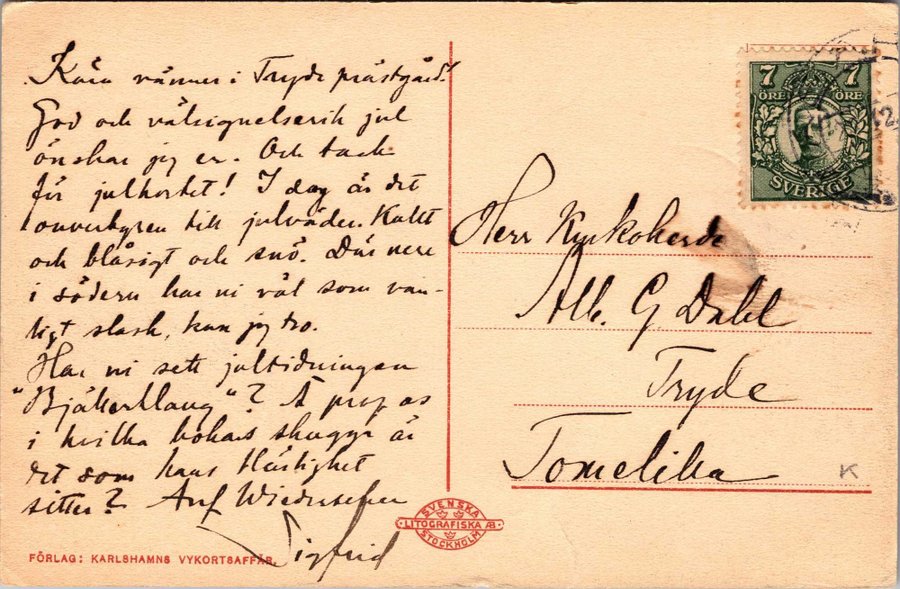 Kära vänner i Tryde prästgård!
God och välsignelserik jul
önskar jag er. Och tack
för julkortet! I dag är det
till julväder. Kallt
och blåsigt och snö. Där nere
i södern har ni väl som van-
ligt slask, kan jag tro.
Har ni sett jultidningen
"Bjällerklang"? A prop os
i hvilka bokars skuggor är
det som hans
sitter? Auf Wiedersehen
Sigfrid
7 7
ÖRE ÖRE
SVERIGE
Herr Kyrkoherde
Alb. G Dahl
Tryde
Tomelilla
K
SVENSKA
LITOGRAFISKA AB
STOCKHOLM
FÖRLAG: KARLSHAMNS VYKORTSAFFÄR.